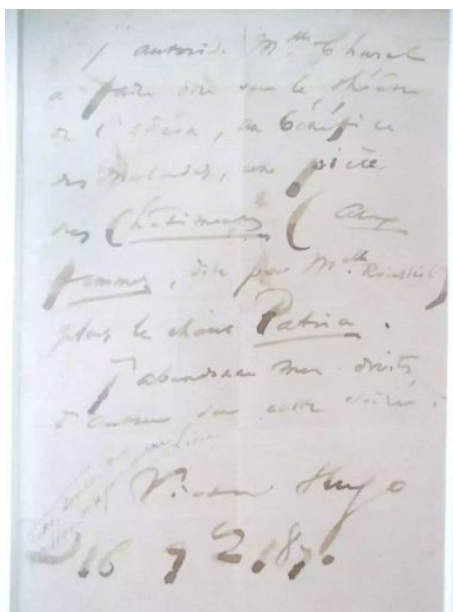 J'autorise Mlle Charel
à faire dire sur le théâtre
de l'Odéon, au bénéfice
des malades, une pièce
des Châtiments (Aux
femmes, dite par Mlle Rousseil)
plus le chœur Patria.
J'abandonne mes droits
d'auteur sur cette soirée.
Victor Hugo
16 9bre 1870